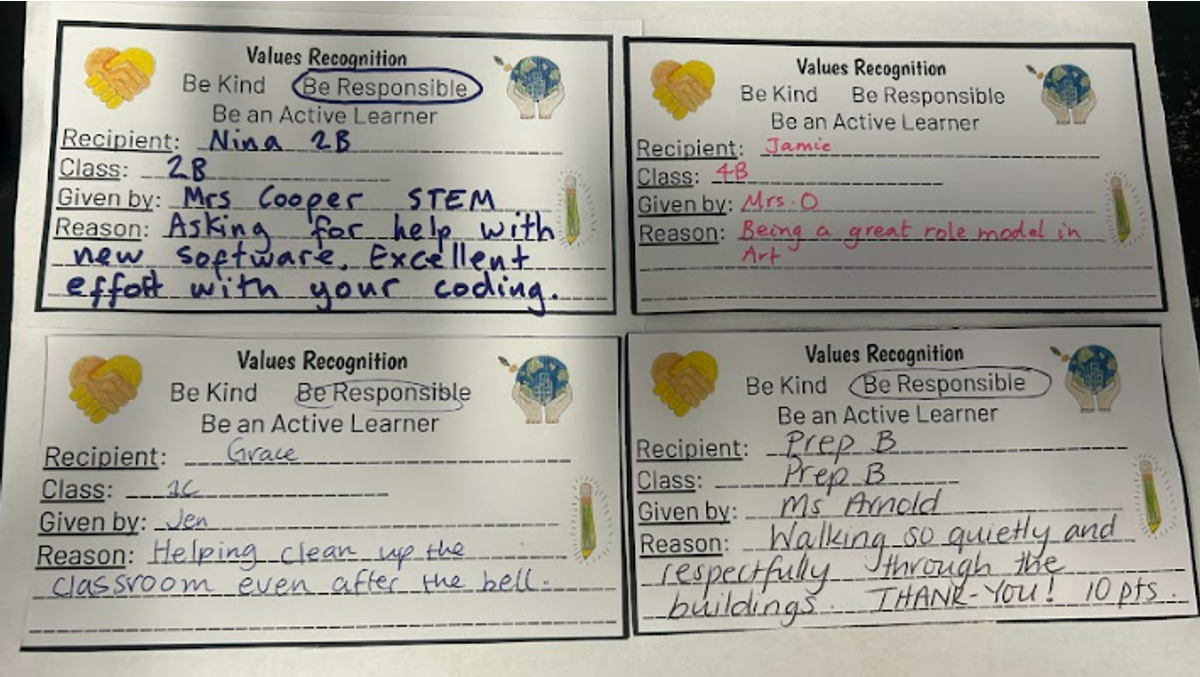 Values Recognition
Be Kind Be Responsible
Be an Active Learner
Recipient: Nina 2B
Class: 2B
Given by: Mrs Cooper STEM
Reason: Asking for help with
new software. Excellent
effort with your coding.
Values Recognition
Be Kind Be Responsible
Be an Active Learner
Recipient: Jamie
Class: 4B
Given by: Mrs. O
Reason: Being a great role model in
Art
Values Recognition
Be Kind Be Responsible
Be an Active Learner
Recipient: Grace
Class: 1C
Given by: Jen
Reason: Helping clean up the
classroom even after the bell.
Values Recognition
Be Kind Be Responsible
Be an Active Learner
Recipient: Prep B
Class: Prep B
Given by: Ms Arnold
Reason: Walking so quietly and
respectfully through the
buildings. THANK-YOU! 10 pts.